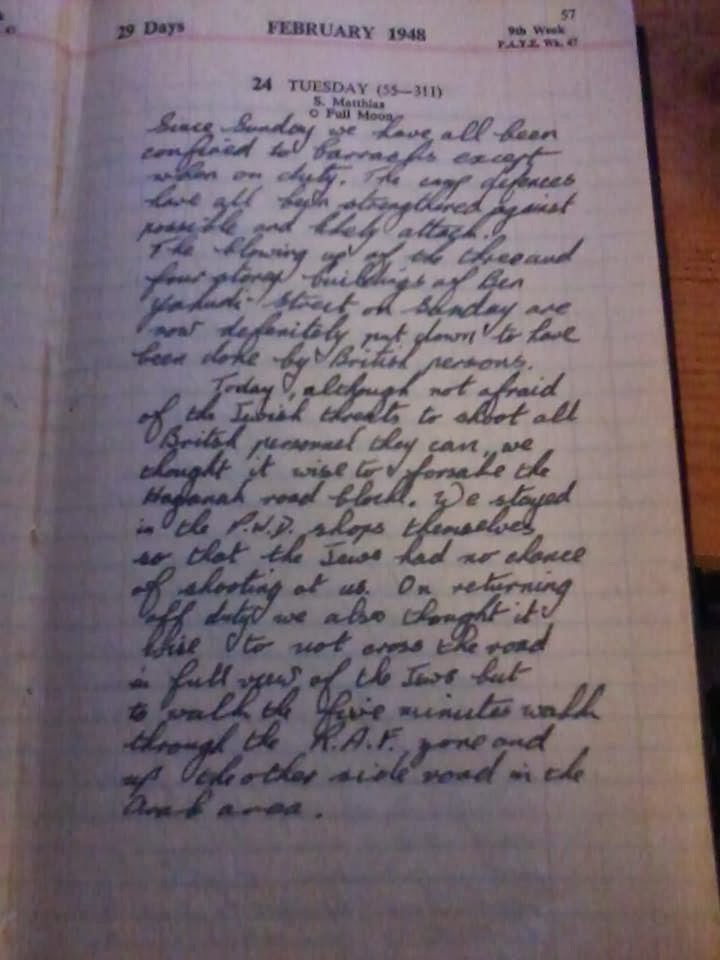 57
29 Days FEBRUARY 1948 9th Week
P.A.Y.E. Wk. 47
24 TUESDAY (55—311)
S. Matthias
○ Full Moon
Since Sunday we have all been
confined to barracks except
when on duty. The camp defences
have all been strengthened against
possible and likely attack.
The blowing up of the three and
four storey buildings of Ben
Yahudi Street on Sunday are
now definitely put down to have
been done by British persons.
Today, although not afraid
of the Jewish threats to shoot all
British personnel they can, we
thought it wise to forsake the
Haganah road block. We stayed
in the P.W.D. shops themselves
so that the Jews had no chance
of shooting at us. On returning
off duty we also thought it
wise to not cross the road
in full view of the Jews but
to walk the five minutes walk
through the R.A.F. zone and
up the other side road in the
Arab area.